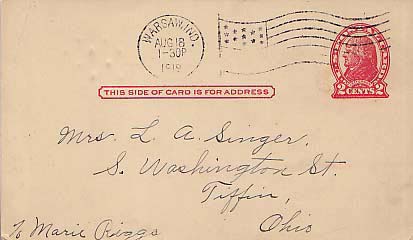 WARSAW, IND.
AUG 18
1-30P
1919
2 CENTS 2
THIS SIDE OF CARD IS FOR ADDRESS
Mrs. L. A. Singer,
S. Washington St.
Tiffin,
Ohio
% Marie Riggs